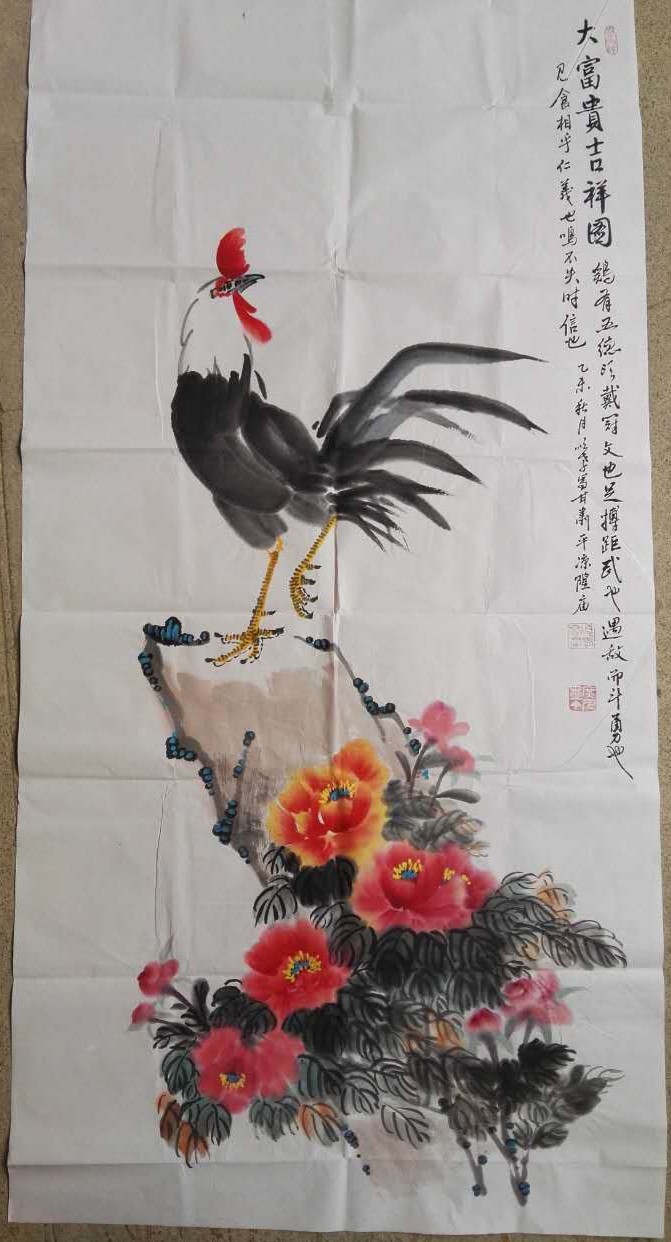 大富貴吉祥图
鷄有五德頭戴冠文也足搏距武也遇敌而斗勇也
见食相乎仁義也鳴不失时信也
乙未秋月 写甘肃平凉隍庙